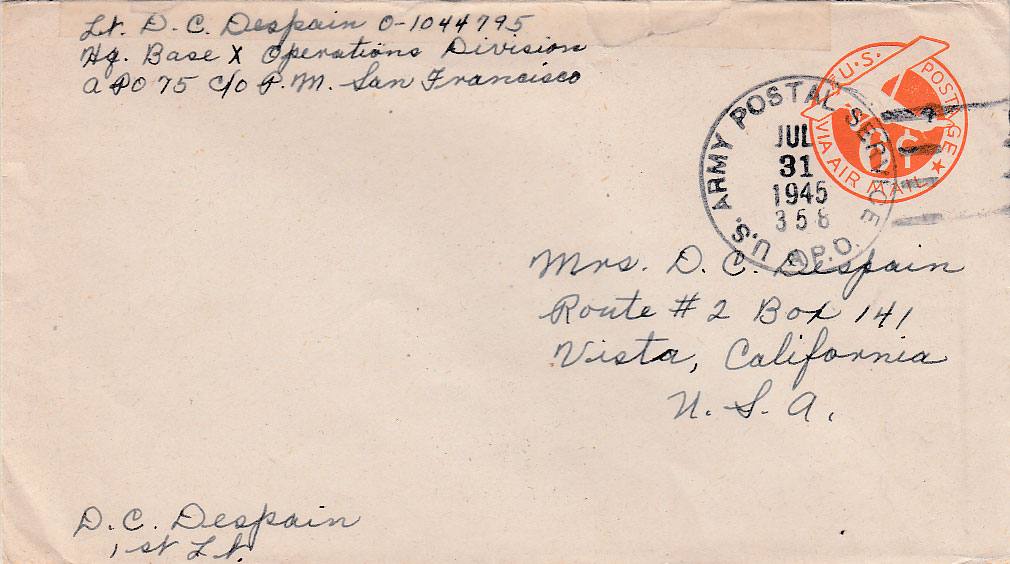 Lt. D. C. Despain O-1044795
Hq. Base X Operations Division
APO 75 c/o P.M. San Francisco
U.S. POSTAGE
VIA AIR MAIL
6¢
U.S. ARMY POSTAL SERVICE
A.P.O.
JUL
31
1945
358
Mrs. D. C. Despain
Route # 2 Box 141
Vista, California
U. S. A.
D. C. Despain
1st Lt.